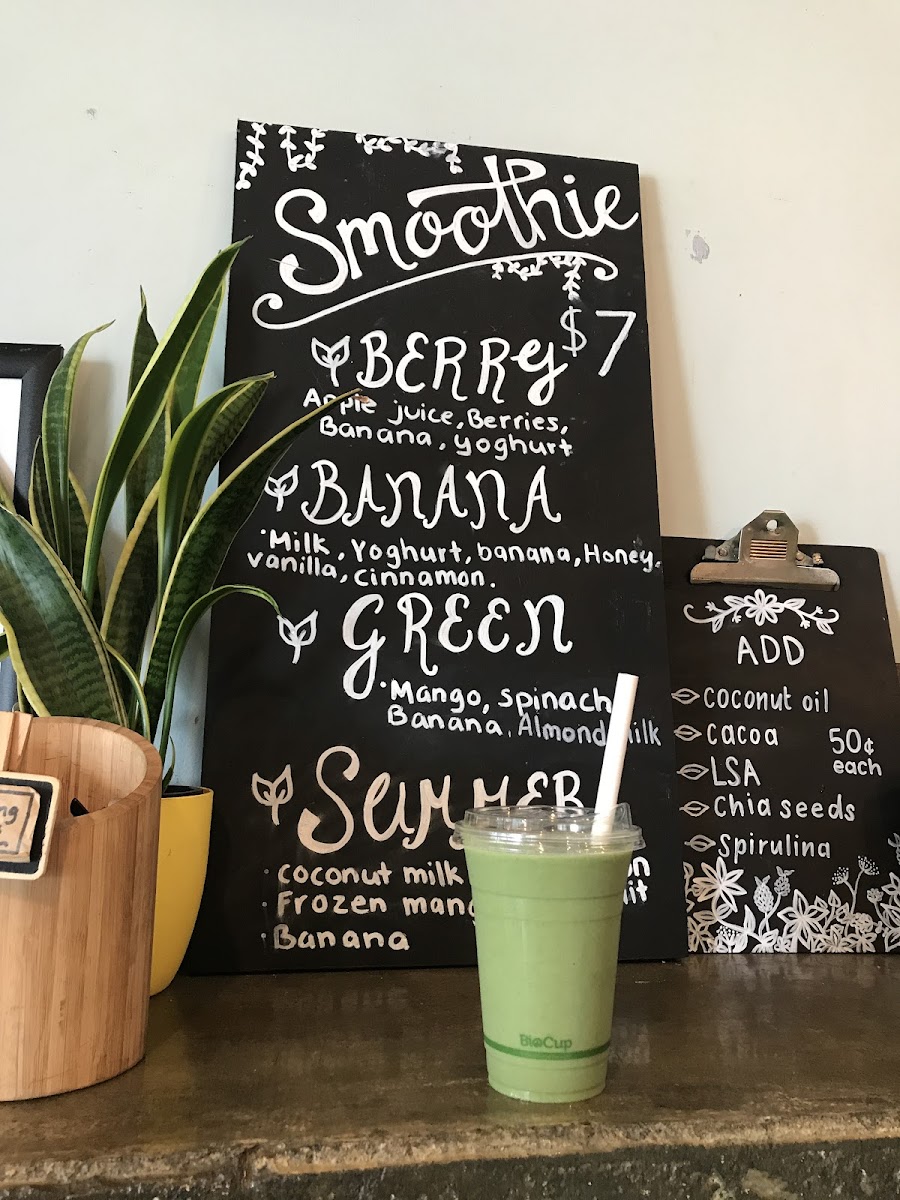 Smoothie
$7
BERRY
Apple juice, Berries,
Banana, yoghurt
BANANA
·Milk, Yoghurt, banana, Honey,
vanilla, cinnamon.
GREEN
·Mango, spinach
Banana, Almond Milk
SUMMER
·coconut milk
·Frozen
·Banana
ADD
coconut oil
cacoa
50¢
each
LSA
Chia seeds
Spirulina
BioCup